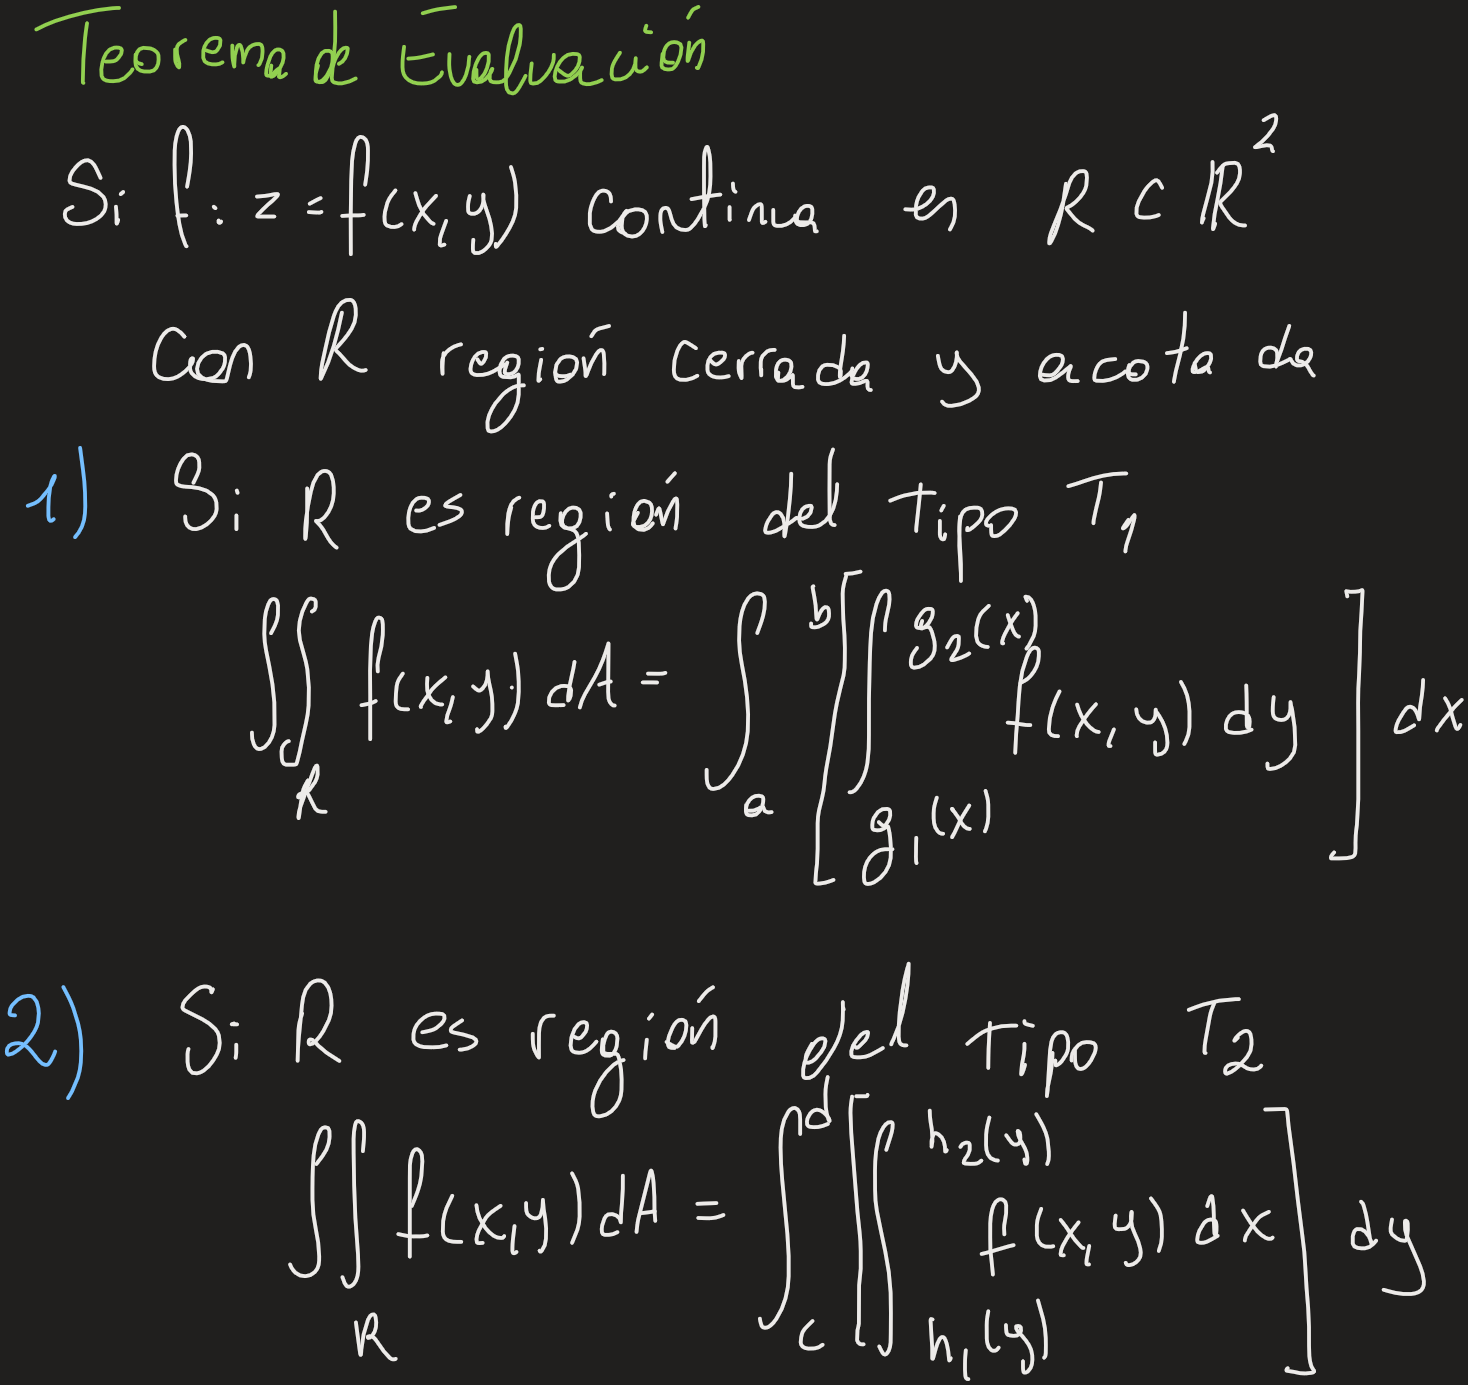 Teorema de Evaluación
Si f: z = f(x, y) continua en R ⊂ ℝ²
Con R región cerrada y acotada
1) Si R es región del tipo T₁
∬_R f(x, y) dA = ∫_a^b [ ∫_{g₁(x)}^{g₂(x)} f(x, y) dy ] dx
2) Si R es región del tipo T₂
∬_R f(x, y) dA = ∫_c^d [ ∫_{h₁(y)}^{h₂(y)} f(x, y) dx ] dy